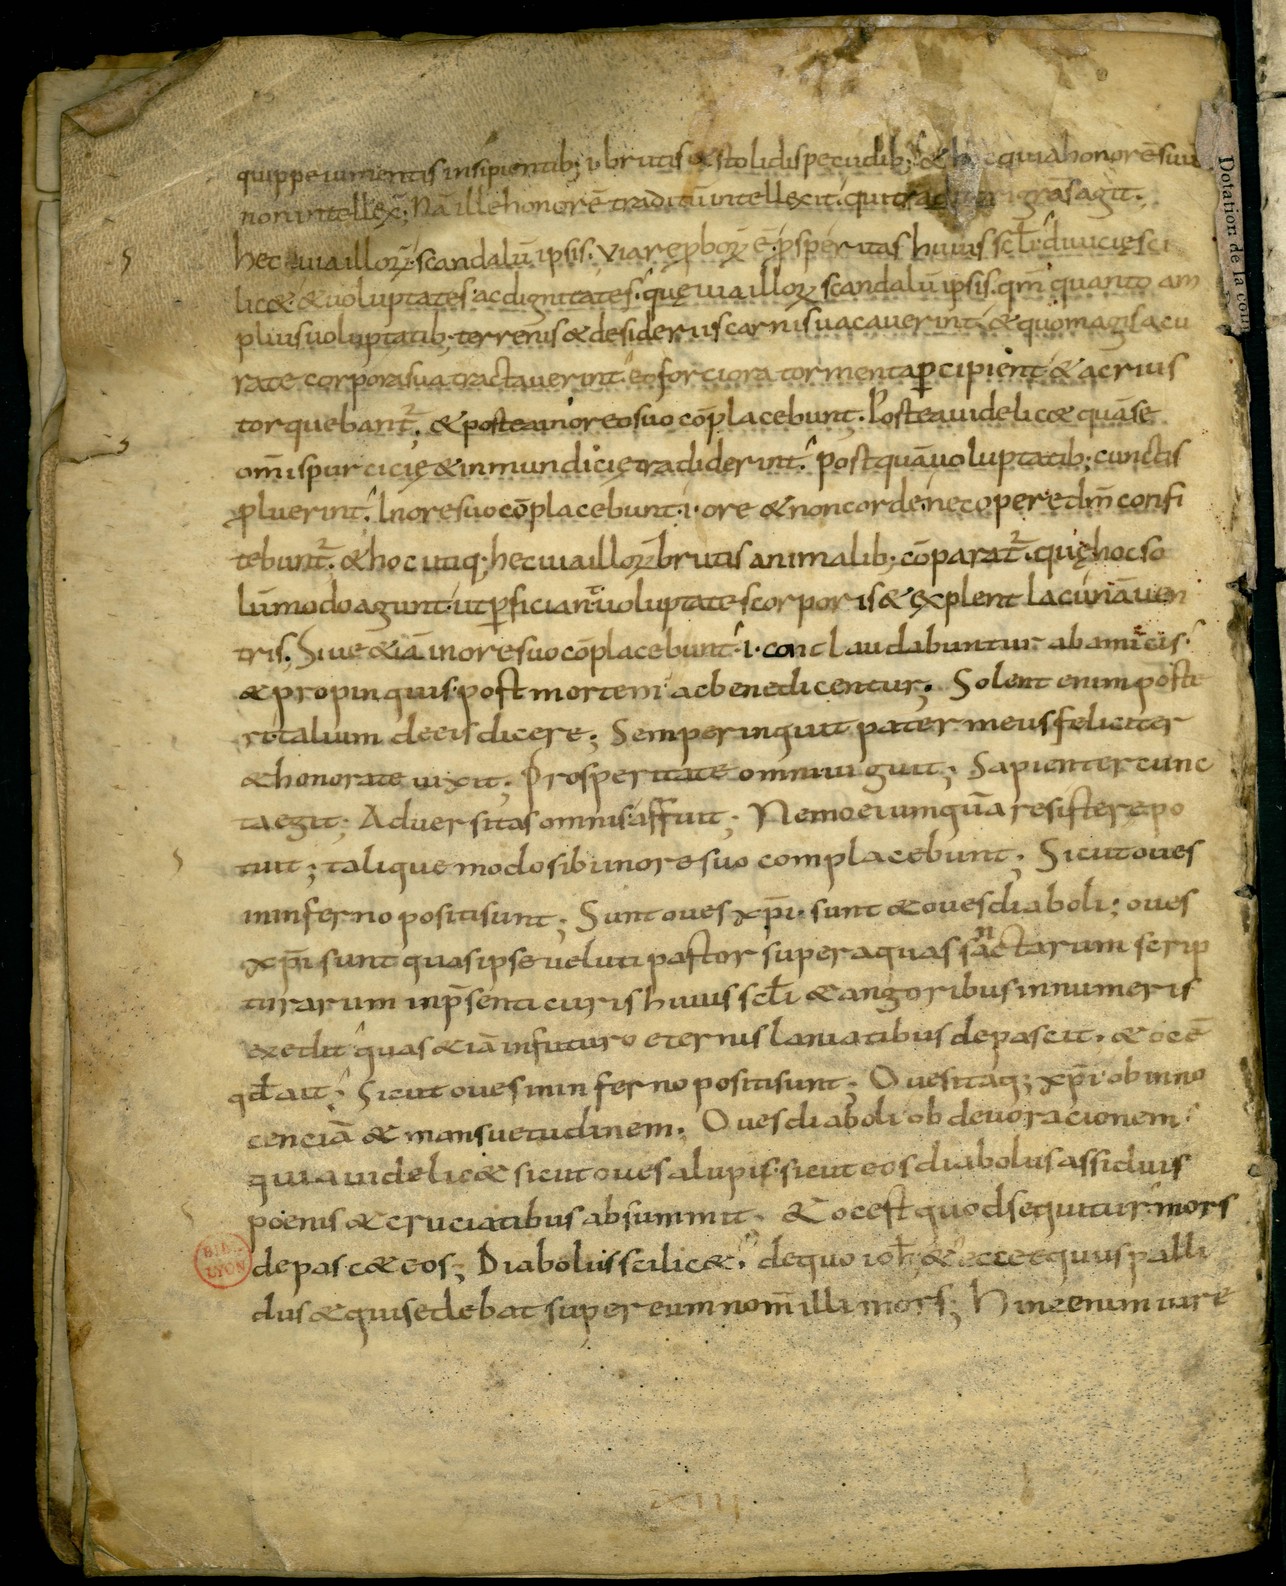 quippe iumentis insipientib; .i. brutis & stolidis pecudib; & h c quia honorē suū
non intellex̄; Nā ille honorē traditū intellexit. qui traditori grās agit.
hec uia illoꝝ scandalū ipsis. Via reproboꝝ ē. ꝓsperitas huius scl̄i. diuicię sci
lic& & uoluptates. ac dignitates. quę uia illoꝝ scandalū ipsis. qm̄ quanto am
plius uoluptatib; terrenis & desideriis carnis uacauerint. & quo magis accu
rate corpora sua tractauerint. eo forciora tormenta ꝑcipient & acrius
torquebant᷑. & postea in ore suo cōplacebunt. Postea uidelic& quā se
om̄i spurcicię & inmundicię tradiderint. postquā uoluptatib; cunctis
ꝓluerint. In ore suo cōplacebunt .i. ore & non corde. nec opere dm̄ confi
tebunt᷑. & hoc utiq; hec uia illoꝝ brutis animalib; cōparat᷑. quę hoc so
lūmodo agunt. ut ꝑficiant uoluptates corporis & explent lacunā uen
tris. Siue &iā in ore suo cōplacebunt .i. conclaudabuntur ab amicis.
& propinquis. post mortem ac benedicentur. Solent enim poste
ri talium de eis dicere; Semper inquit pater meus feliciter
& honorate uixit; Prosperitate omni uiguit; Sapienter cunc
ta egit; Aduersitas omnis affuit; Nemo ei umquā resistere po
tuit; talique modo sibi in ore suo complacebunt. Sicut oues
in inferno positi sunt; Sunt oues xp̄i. sunt & oues diaboli; oues
xp̄i sunt quas ipse ueluti pastor super aquas sanctarum scrip
turarum in p̄senti curis huius scl̄i & angoribus innumeris
exedit quas &iā in futuro eternis laniatibus depascit. & oc ē
qd̄ ait. Sicut oues in inferno positi sunt; Oues itaq; xp̄i ob inno
cenciā & mansuetudinem. Oues diaboli ob deuoracionem.
quia uidelic& sicut oues a lupis. sicut eos diabolus assiduis
poenis & cruciatibus absummit. & oc est quod sequitur. mors
depasc& eos; Diabolus scilic&. de quo ioh̄; & ecce equus palli
dus & qui sedebat super eum nom̄ illi mors; Hinc enim uire
BIB. LYON
XIII
Dotation de la cour